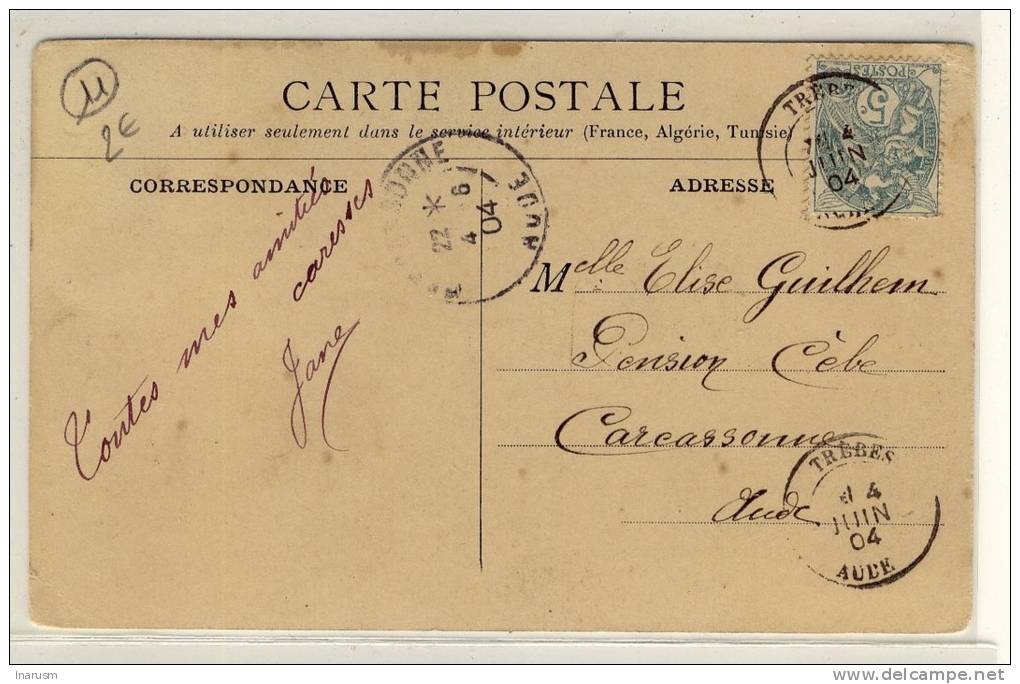 11
2€
CARTE POSTALE
A utiliser seulement dans le service intérieur (France, Algérie, Tunisie)
CORRESPONDANCE
ADRESSE
Toutes mes amitiés
caresses
Jane
Melle Elise Guilhem
Pension Cèbe
Carcassonne
Aude
POSTES
5
TRÈBES
4
JUIN
04
22 *
4 6
04
AUDE
TRÈBES
4
JUIN
04
AUDE
Inarusm
delcampe.net